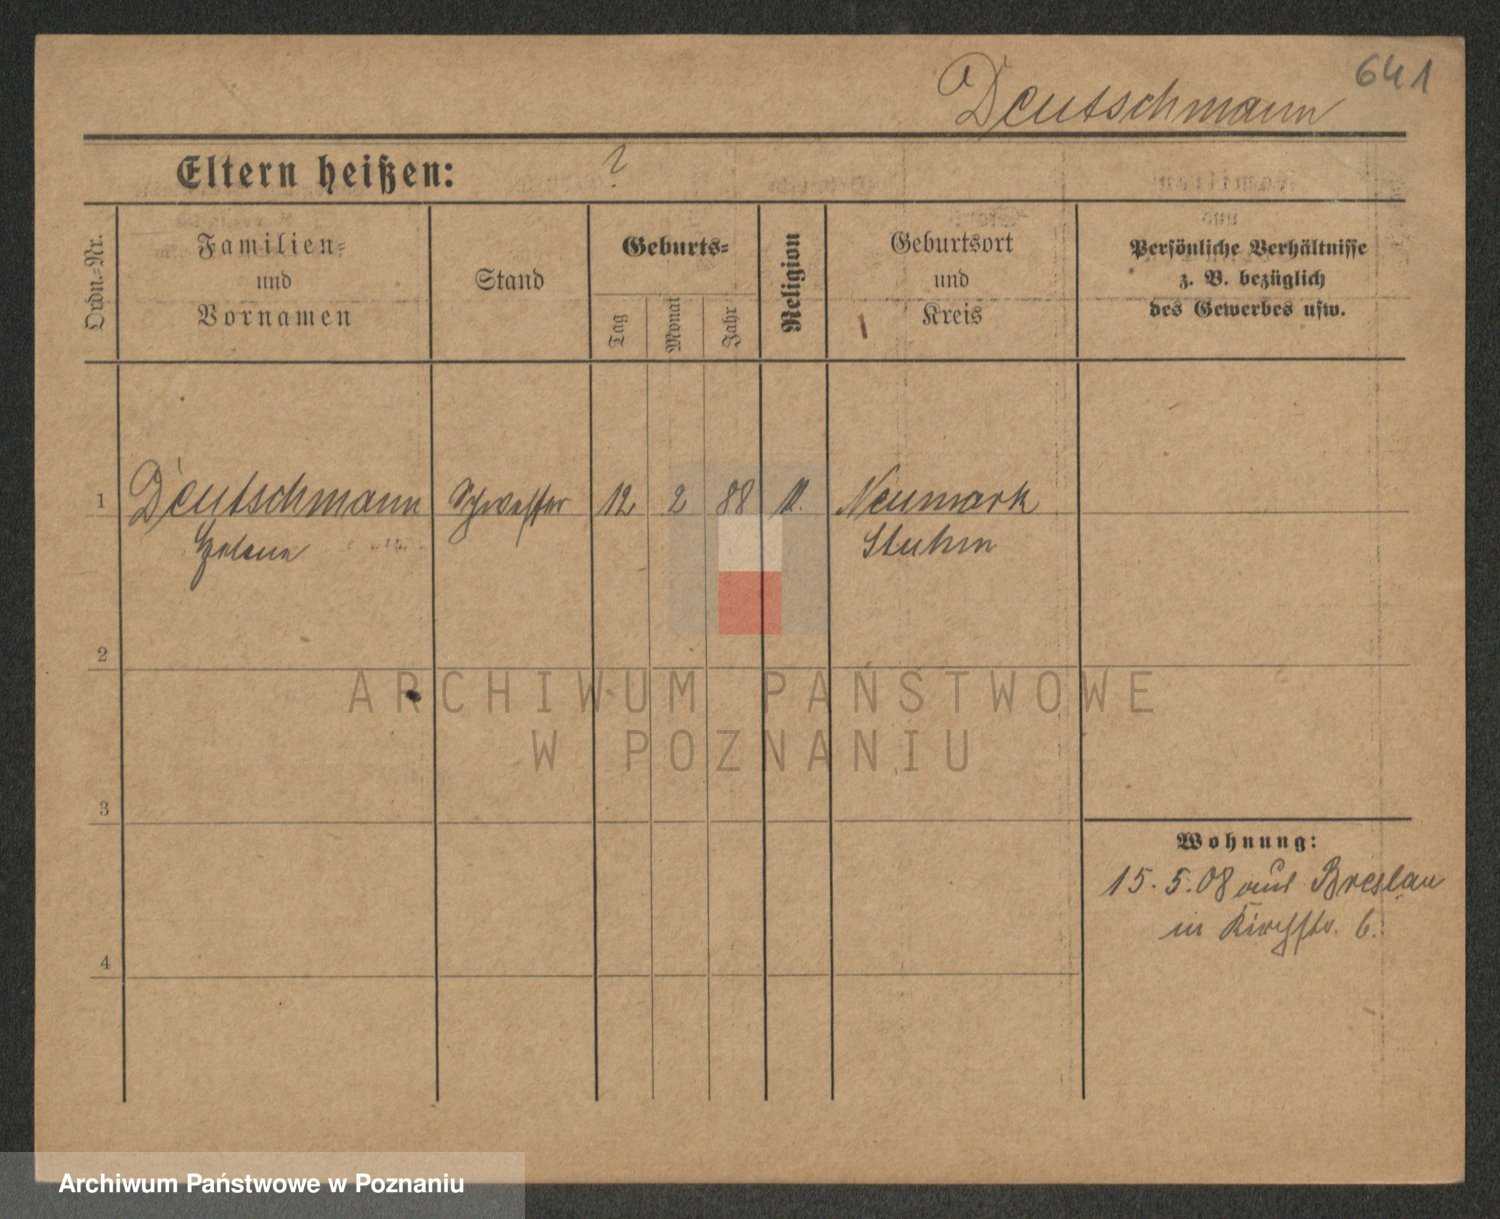 641
Deutschmann
Eltern heißen: ?
Ordn.-Nr.
Familien-
und
Vornamen
Stand
Geburts-
Tag
Monat
Jahr
Religion
Geburtsort
und
Kreis
Persönliche Verhältnisse
z. B. bezüglich
des Gewerbes usw.
1 Deutschmann Schwester 12 2 88 Neumark
Helene Stuhm
2
3
4
Wohnung:
15. 5. 08 aus Breslau
in Kirchstr. 6.
ARCHIWUM PAŃSTWOWE
W POZNANIU
Archiwum Państwowe w Poznaniu